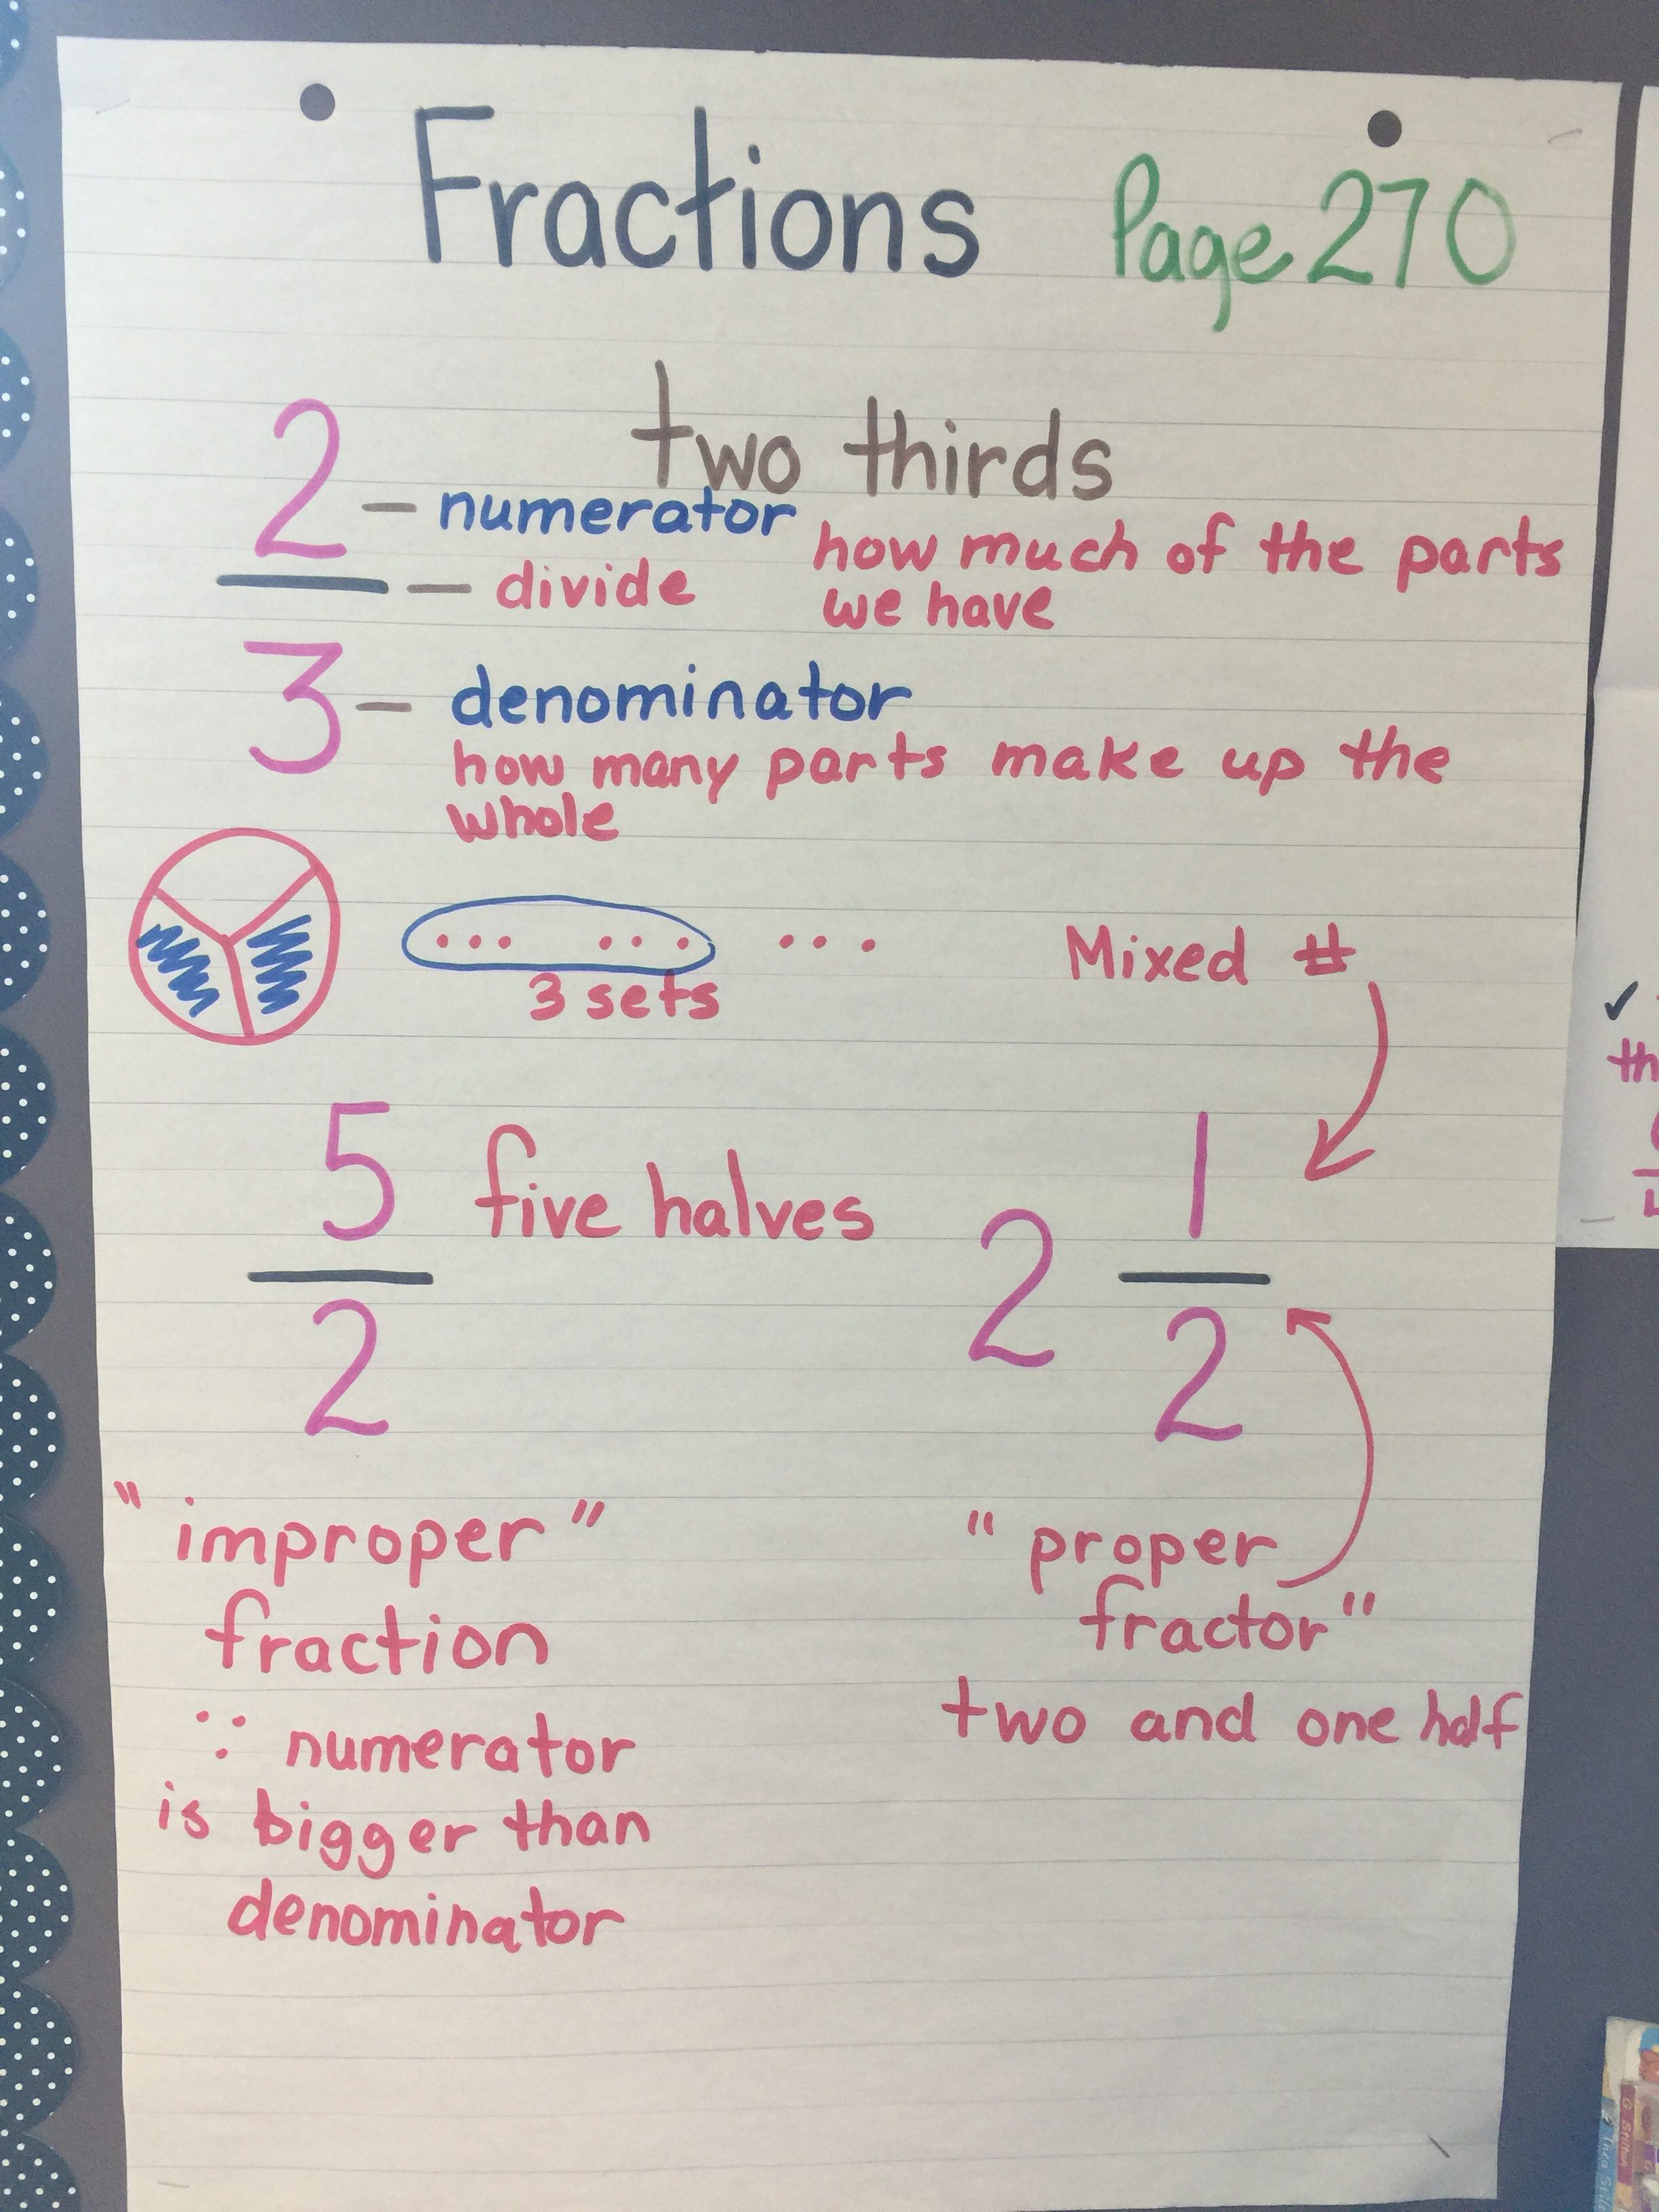 Fractions Page 270
two thirds
2 – numerator
how much of the parts
we have
— divide
3 – denominator
how many parts make up the
whole
3 sets
Mixed #
5
2
five halves
2 1
2
"improper"
fraction
∵ numerator
is bigger than
denominator
"proper
fractor"
two and one half
✓
th